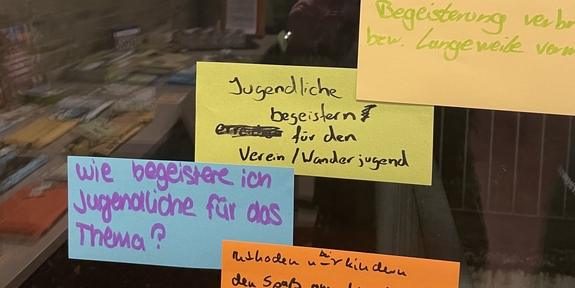 Begeisterung
bzw. Langeweile
Jugendliche
begeistern
für den
Verein/Wanderjugend
wie begeistere ich
Jugendliche für das
Thema?
Methoden
kindern
den Spaß